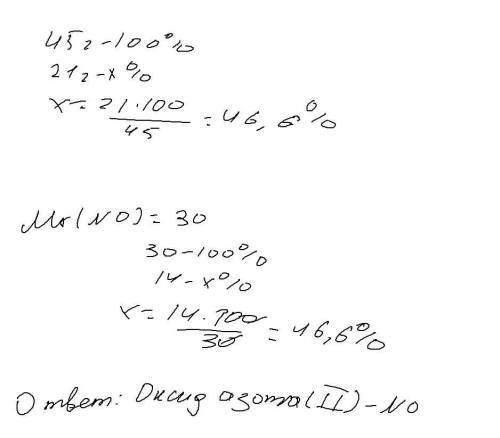 45г - 100%
21г - x%
x = 21·100 / 45 = 46,6%
Mr(NO) = 30
30 - 100%
14 - x%
x = 14·100 / 30 = 46,6%
Ответ: Оксид азота(II) - NO